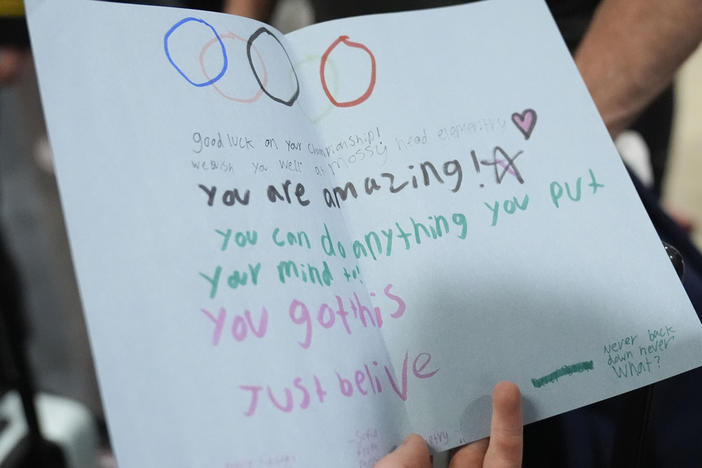 good luck on your championship!
we wish you well at mossy head elementry
you are amazing!
you can do anything you put
your mind to!
You got this
Just belive
Never back
down never
What?